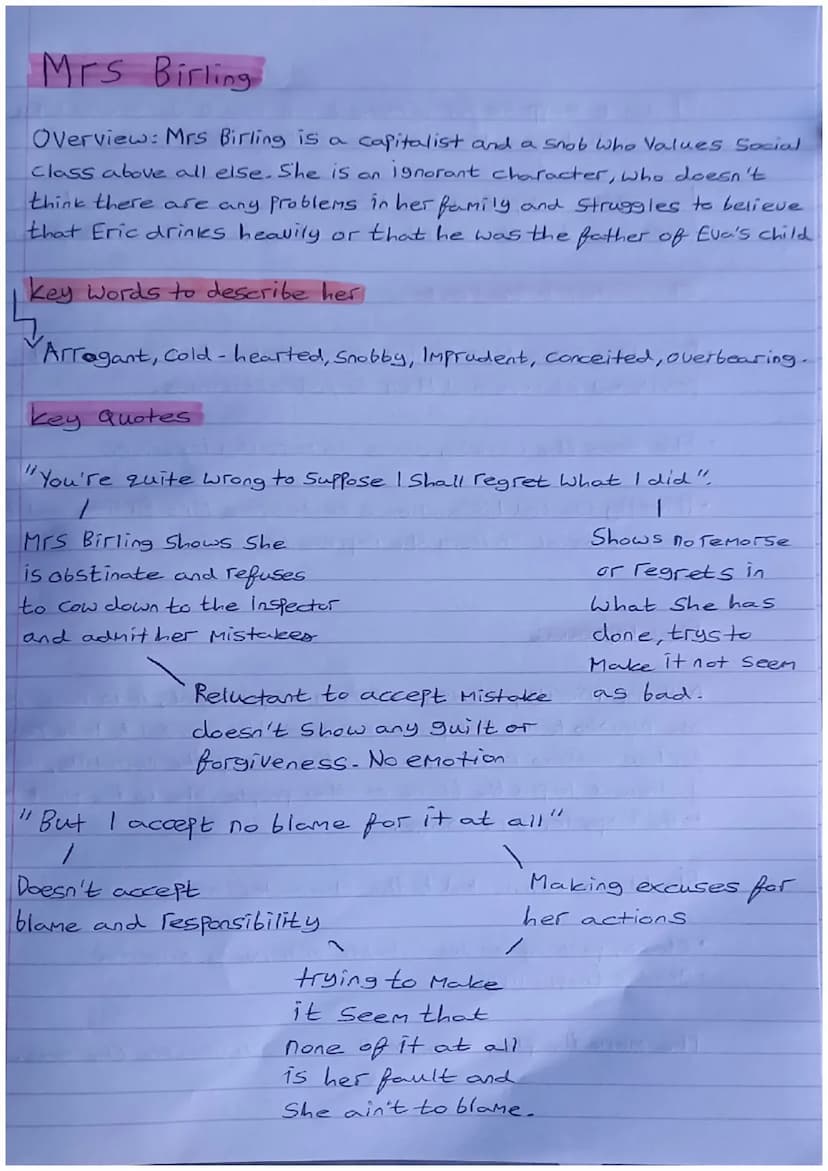 Mrs Birling
Overview: Mrs Birling is a capitalist and a snob who values social
class above all else. She is an ignorant character, who doesn't
think there are any problems in her family and struggles to believe
that Eric drinks heavily or that he was the father of Eva's child
Key words to describe her
Arrogant, cold-hearted, snobby, Imprudent, conceited, overbearing.
Key Quotes
"You're quite wrong to suppose I shall regret what I did".
Mrs Birling shows she
is obstinate and refuses
to cow down to the Inspector
and admit her mistakes
Reluctant to accept mistake
doesn't show any guilt or
forgiveness. No emotion
Shows no remorse
or regrets in
what she has
done, trys to
make it not seem
as bad.
"But I accept no blame for it at all"
Doesn't accept
blame and responsibility
Making excuses for
her actions
trying to make
it seem that
none of it at all
is her fault and
she ain't to blame.